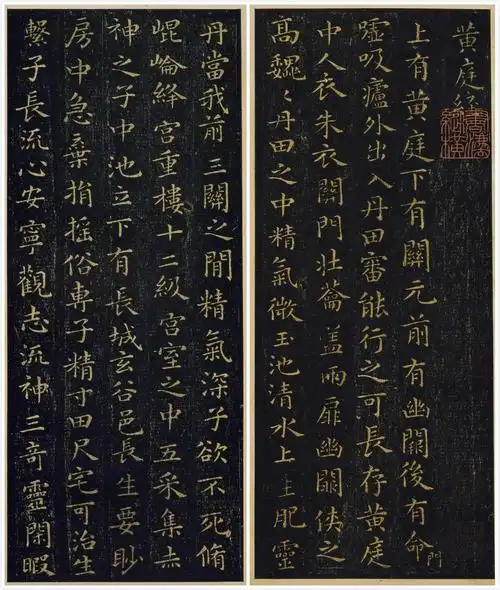 黃庭経
上有黃庭下有關元前有幽闕後有命門
嘘吸廬外出入丹田審能行之可長存黃庭
中人衣朱衣關門壯籥蓋兩扉幽闕俠之
高魏〻丹田之中精氣微玉池清水上生肥靈
丹當我前三關之間精氣深子欲不死脩
崐崘絳宮重樓十二級宮室之中五采集赤
神之子中池立下有長城玄谷邑長生要眇
房中急棄捐搖俗專子精寸田尺宅可治生
繫子長流心安寧觀志流神三奇靈閑暇